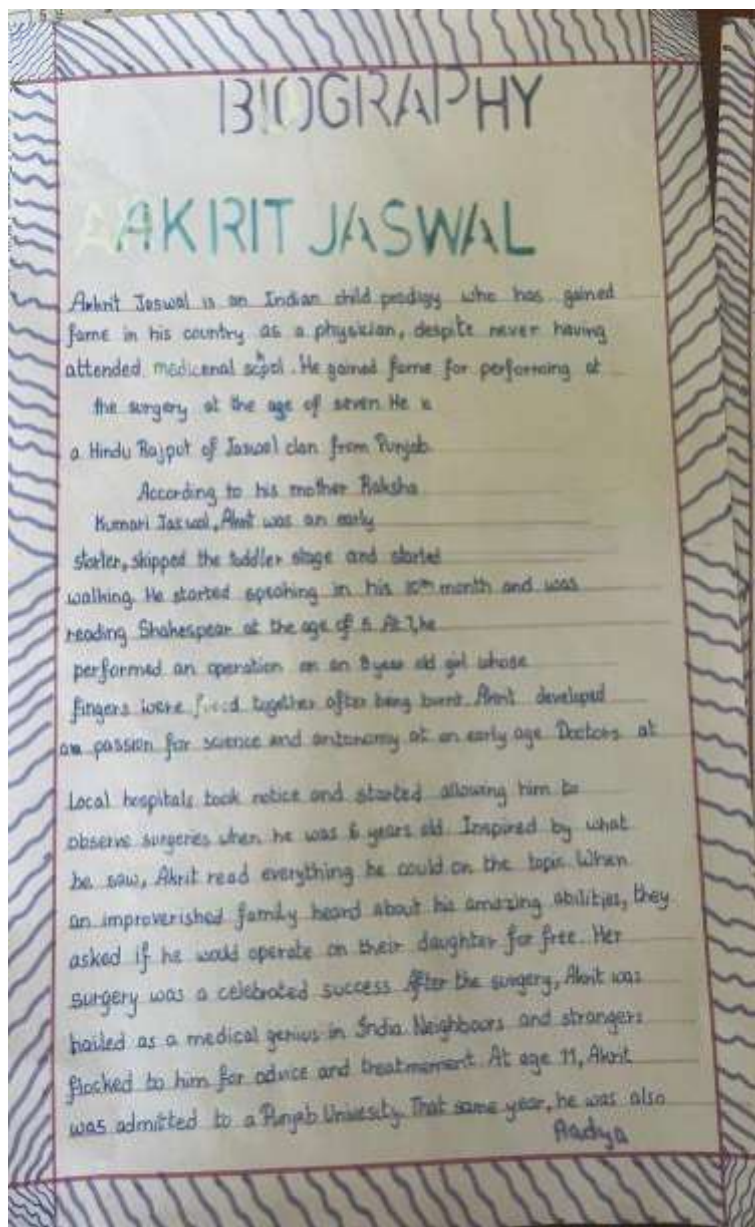 BIOGRAPHY
AKRIT JASWAL
Akrit Jaswal is an Indian child prodigy who has gained
fame in his country as a physician, despite never having
attended medicenal school. He gained fame for performing at
the surgery at the age of seven. He is
a Hindu Rajput of Jaswal clan from Punjab.
According to his mother Raksha
Kumari Jaswal, Akrit was an early
starter, skipped the toddler stage and started
walking. He started speaking in his 10th month and was
reading Shakespear at the age of 5. At 7, he
performed an operation on an 8 year old girl whose
fingers were fused together after being burnt. Akrit developed
a passion for science and antonomy at an early age. Doctors at
Local hospitals took notice and started allowing him to
observe surgeries when he was 6 years old. Inspired by what
he saw, Akrit read everything he could on the topic. When
an improverished family heard about his amazing abilities, they
asked if he would operate on their daughter for free. Her
surgery was a celebrated success. After the surgery, Akrit was
hailed as a medical genius in India. Neighbours and strangers
flocked to him for advice and treatmement. At age 11, Akrit
was admitted to a Punjab Univesity. That same year, he was also
Aadya